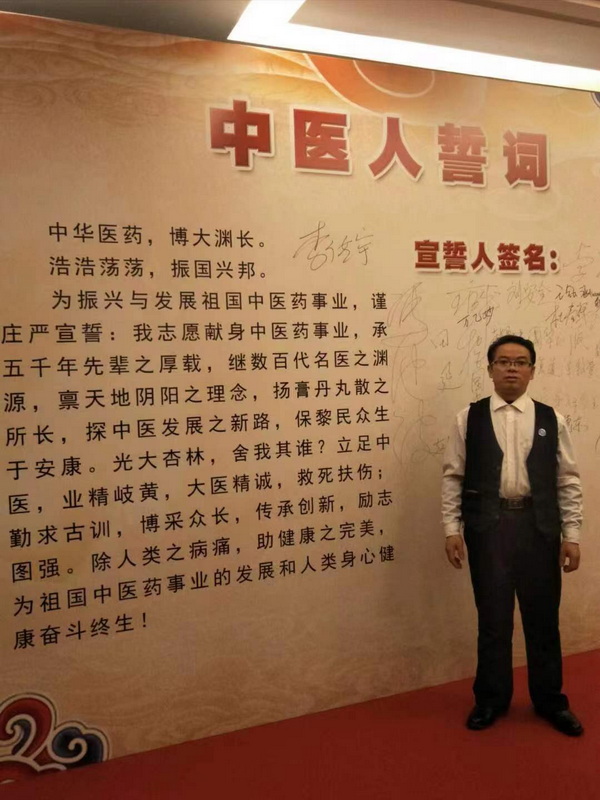 中医人誓词
中华医药，博大渊长。
浩浩荡荡，振国兴邦。
宣誓人签名：
为振兴与发展祖国中医药事业，谨
庄严宣誓：我志愿献身中医药事业，承
五千年先辈之厚载，继数百代名医之渊
源，禀天地阴阳之理念，扬膏丹丸散之
所长，探中医发展之新路，保黎民众生
于安康。光大杏林，舍我其谁？立足中
医，业精岐黄，大医精诚，救死扶伤；
勤求古训，博采众长，传承创新，励志
图强。除人类之病痛，助健康之完美，
为祖国中医药事业的发展和人类身心健
康奋斗终生！